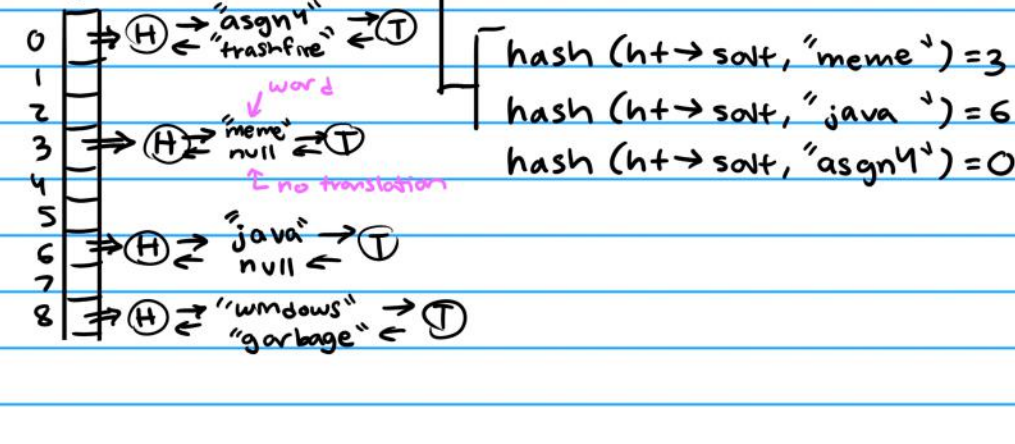 0 H "asgn4" T
"trashfire"
1
word
2
3 H "meme" T
null
4 no translation
5
6 H "java" T
null
7
8 H "windows" T
"garbage"
hash (ht→salt, "meme") = 3
hash (ht→salt, "java") = 6
hash (ht→salt, "asgn4") = 0